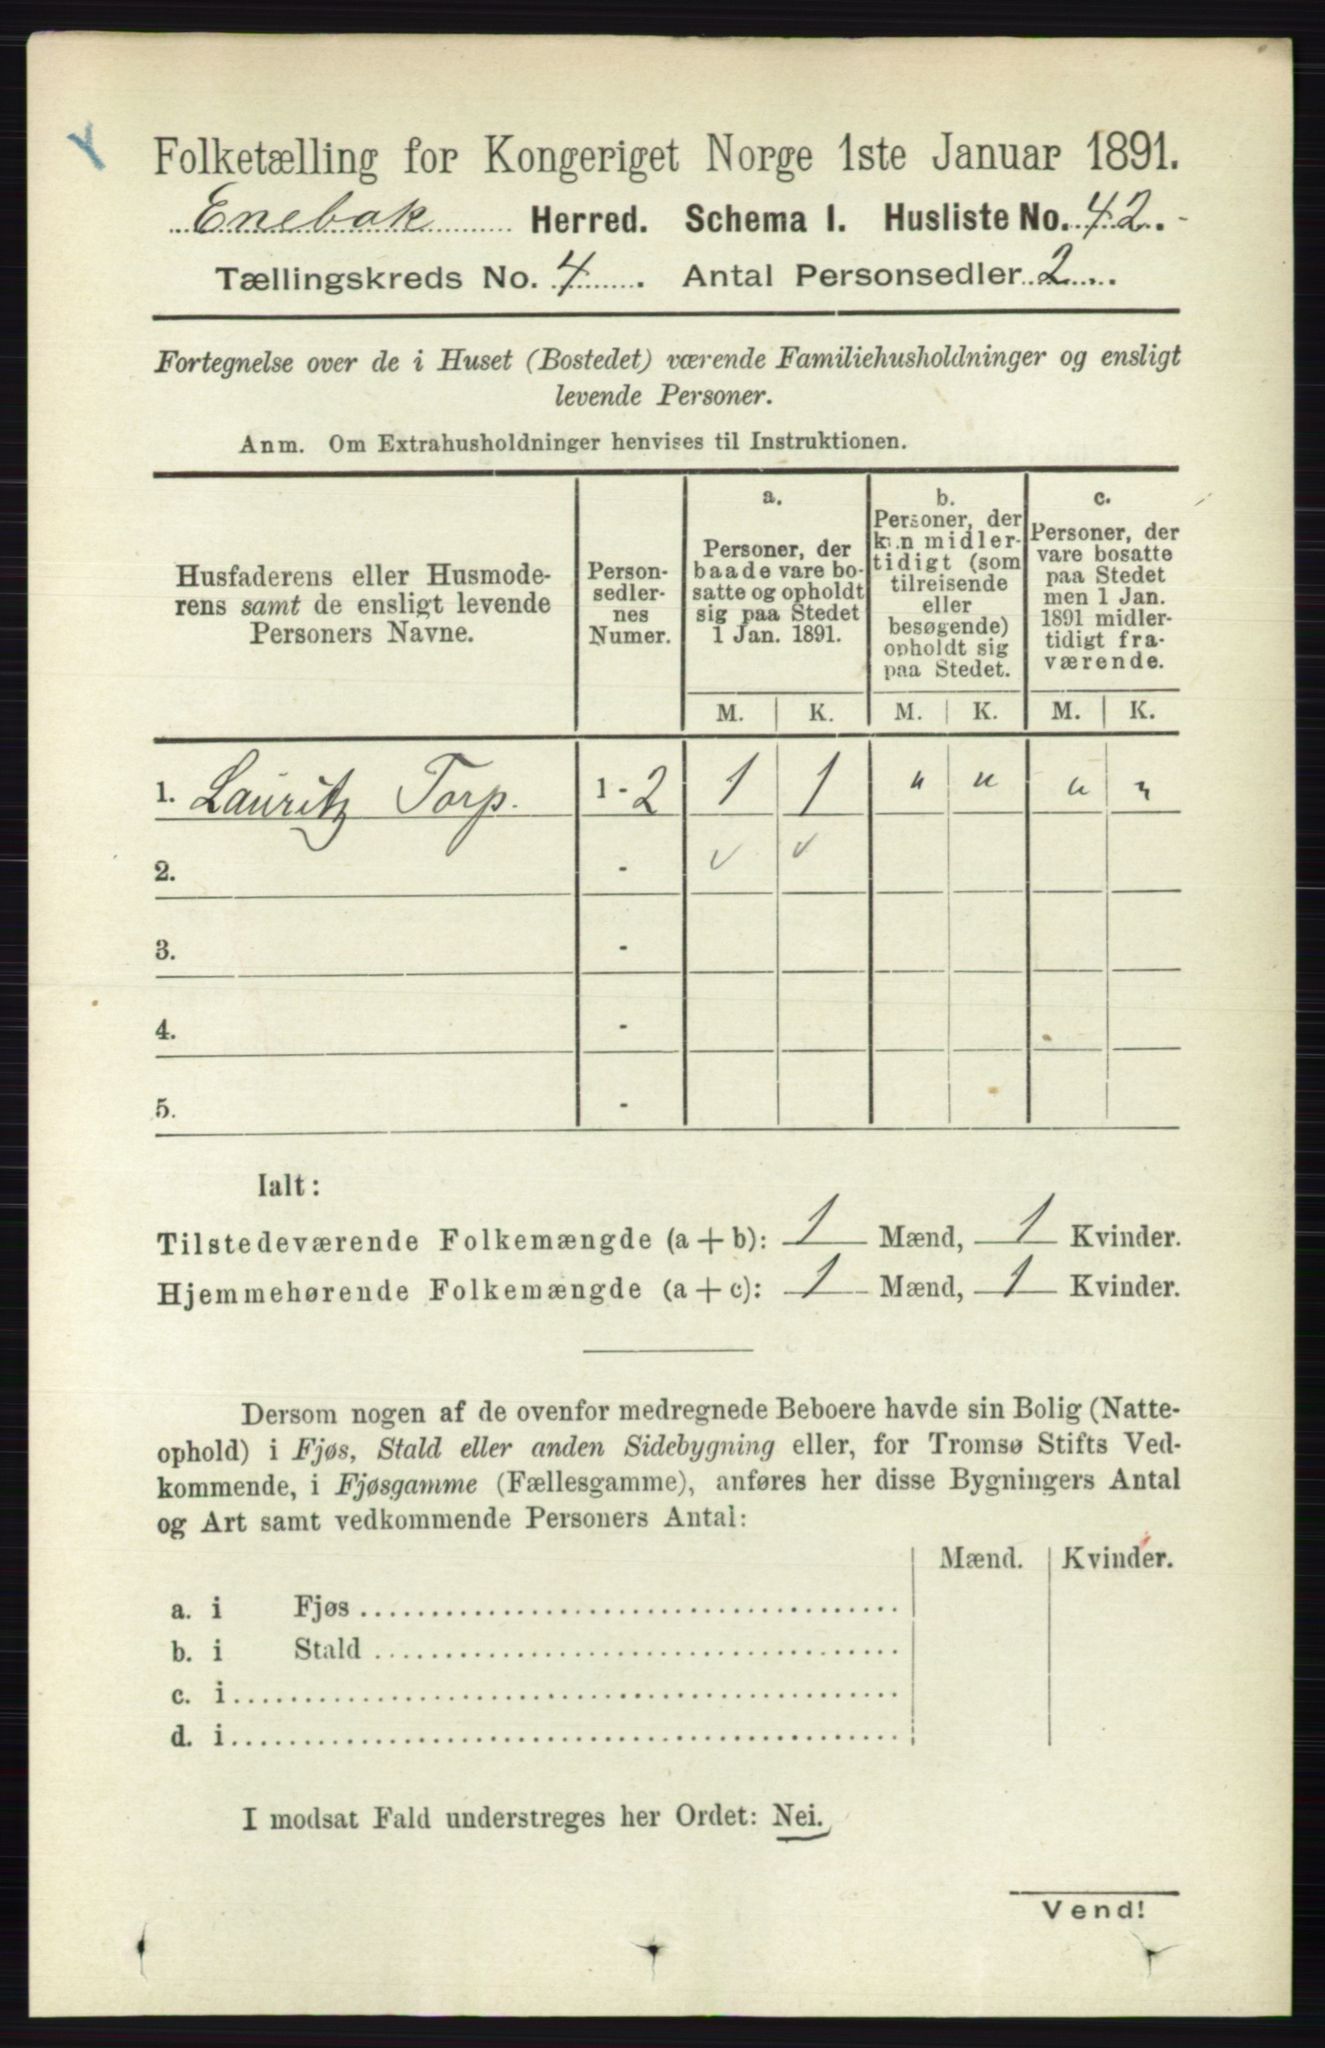 Folketælling for Kongeriget Norge 1ste Januar 1891.
Enebak Herred. Schema I. Husliste No. 42.
Tællingskreds No. 4. Antal Personsedler 2.
Fortegnelse over de i Huset (Bostedet) værende Familiehusholdninger og ensligt
levende Personer.
Anm. Om Extrahusholdninger henvises til Instruktionen.
Husfaderens eller Husmode-
rens samt de ensligt levende
Personers Navne.
Person-
sedler-
nes
Numer.
a.
Personer, der
baade vare bo-
satte og opholdt
sig paa Stedet
1 Jan. 1891.
b.
Personer, der
kun midler-
tidigt (som
tilreisende
eller
besøgende)
opholdt sig
paa Stedet.
c.
Personer, der
vare bosatte
paa Stedet
men 1 Jan.
1891 midler-
tidigt fra-
værende.
M. K. M. K. M. K.
1. Lauritz Torp. 1 - 2 1 1 " " " "
2. - ✓ ✓
3. -
4. -
5. -
Ialt:
Tilstedeværende Folkemængde (a + b): 1 Mænd, 1 Kvinder.
Hjemmehørende Folkemængde (a + c): 1 Mænd, 1 Kvinder.
Dersom nogen af de ovenfor medregnede Beboere havde sin Bolig (Natte-
ophold) i Fjøs, Stald eller anden Sidebygning eller, for Tromsø Stifts Ved-
kommende, i Fjøsgamme (Fællesgamme), anføres her disse Bygningers Antal
og Art samt vedkommende Personers Antal:
Mænd. Kvinder.
a. i Fjøs
b. i Stald
c. i
d. i
I modsat Fald understreges her Ordet: Nei.
Vend!